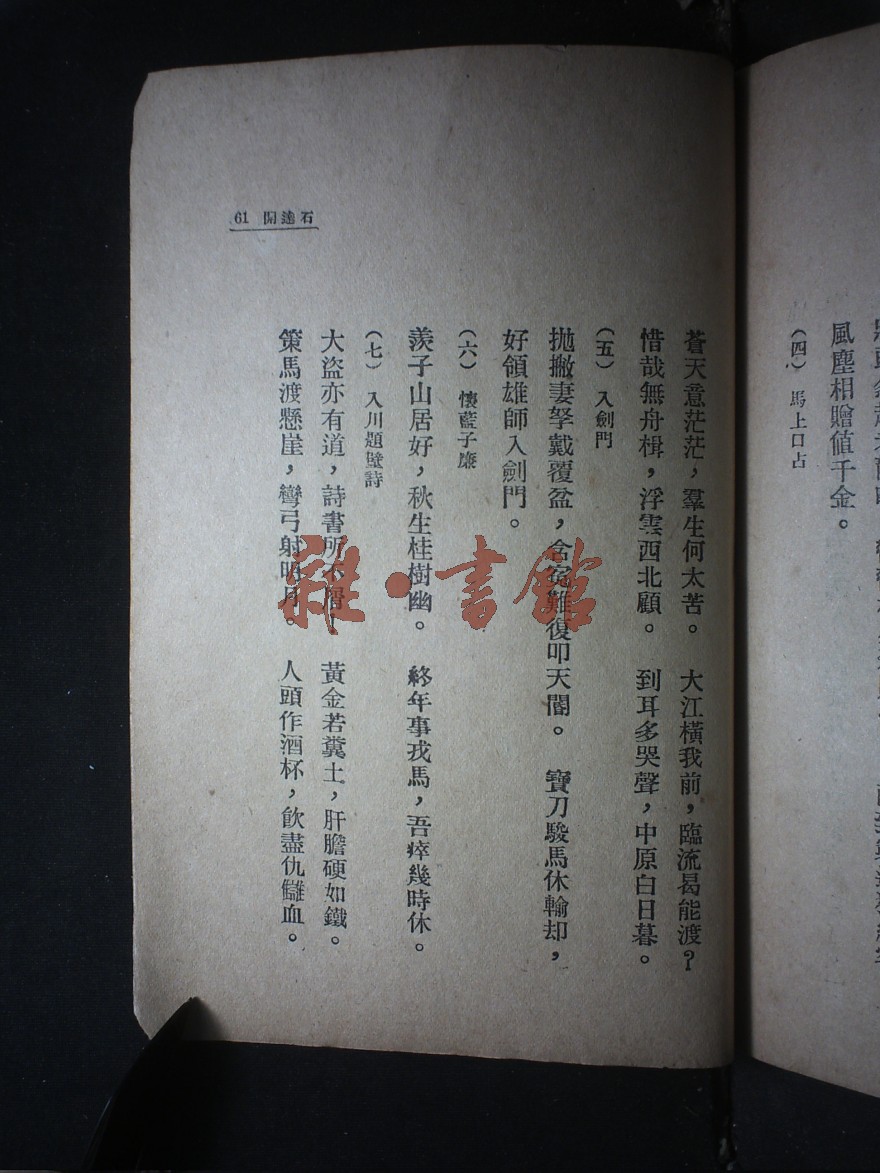 風塵相贈值千金。
（四）　馬上口占
石達開　61
蒼天意茫茫，羣生何太苦。　大江橫我前，臨流曷能渡？
惜哉無舟楫，浮雲西北顧。　到耳多哭聲，中原白日暮。
（五）　入劍門
拋撇妻孥戴覆盆，含寃難復叩天閽。　寶刀駿馬休輸却，
好領雄師入劍門。
（六）　懷藍子廉
羨子山居好，秋生桂樹幽。　終年事戎馬，吾瘁幾時休。
（七）　入川題壁詩
大盜亦有道，詩書所不屑；　黃金若糞土，肝膽硬如鐵。
策馬渡懸崖，彎弓射明月。　人頭作酒杯，飲盡仇讎血。
雜·書館